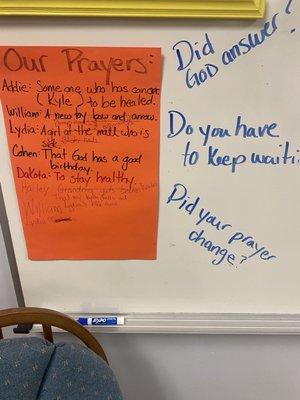 Our Prayers:
Addie: Some one who has cancer
(Kyle) to be healed.
William: A new toy bow and arrow.
Lydia: A girl at the mall who is
sick
Cohen: That God has a good
birthday.
Dakota: To stay healthy.
Hailey: Grandma gets better
William
Lydia
Did
God answer?
Do you have
to keep waiti
Did your prayer
change?
EXPO